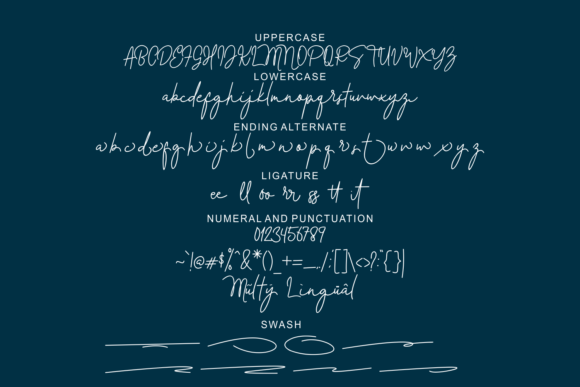 UPPERCASE
ABCDEFGHIJKLMNOPQRSTUVWXYZ
LOWERCASE
abcdefghijklmnopqrstuvwxyz
ENDING ALTERNATE
abcdefghijklmnopqrstuvwxyz
LIGATURE
ee ll oo rr ss tt it
NUMERAL AND PUNCTUATION
0123456789
~`!@#$%^&*()_+=_.,/:;'[]\<>?:"{}|
Mültÿ Lingüâl
SWASH